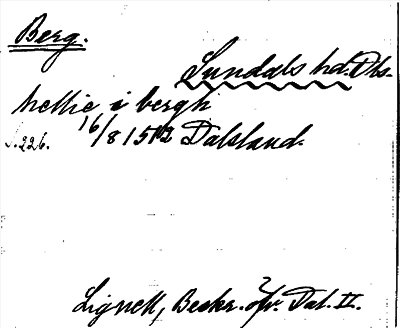 Berg.
Sundals hd. Dls.
hellie i bergh
s. 226. 16/8 1512 Dalsland.
Lignell, Beskr. öfv. Dal. II.